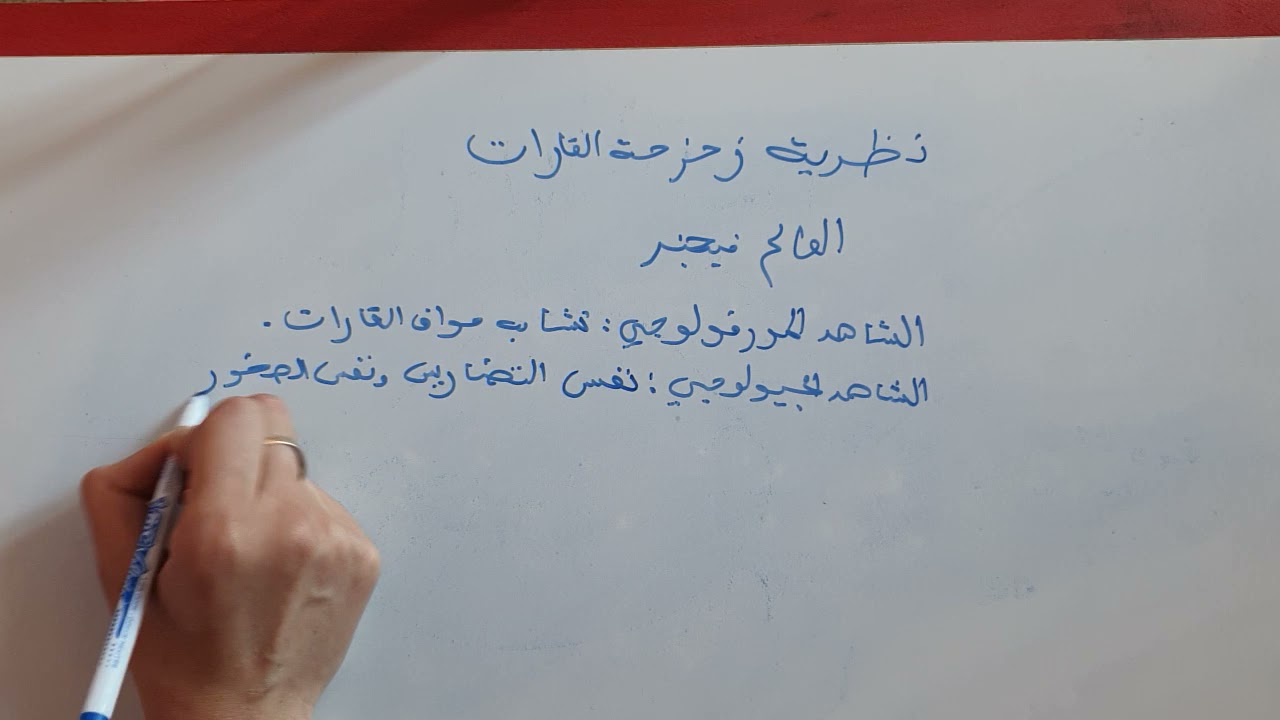 نظرية زحزحة القارات
العالم فيجنر
الشاهد المورفولوجي: تشابه حواف القارات.
الشاهد الجيولوجي: نفس التضاريس ونفس الصخور